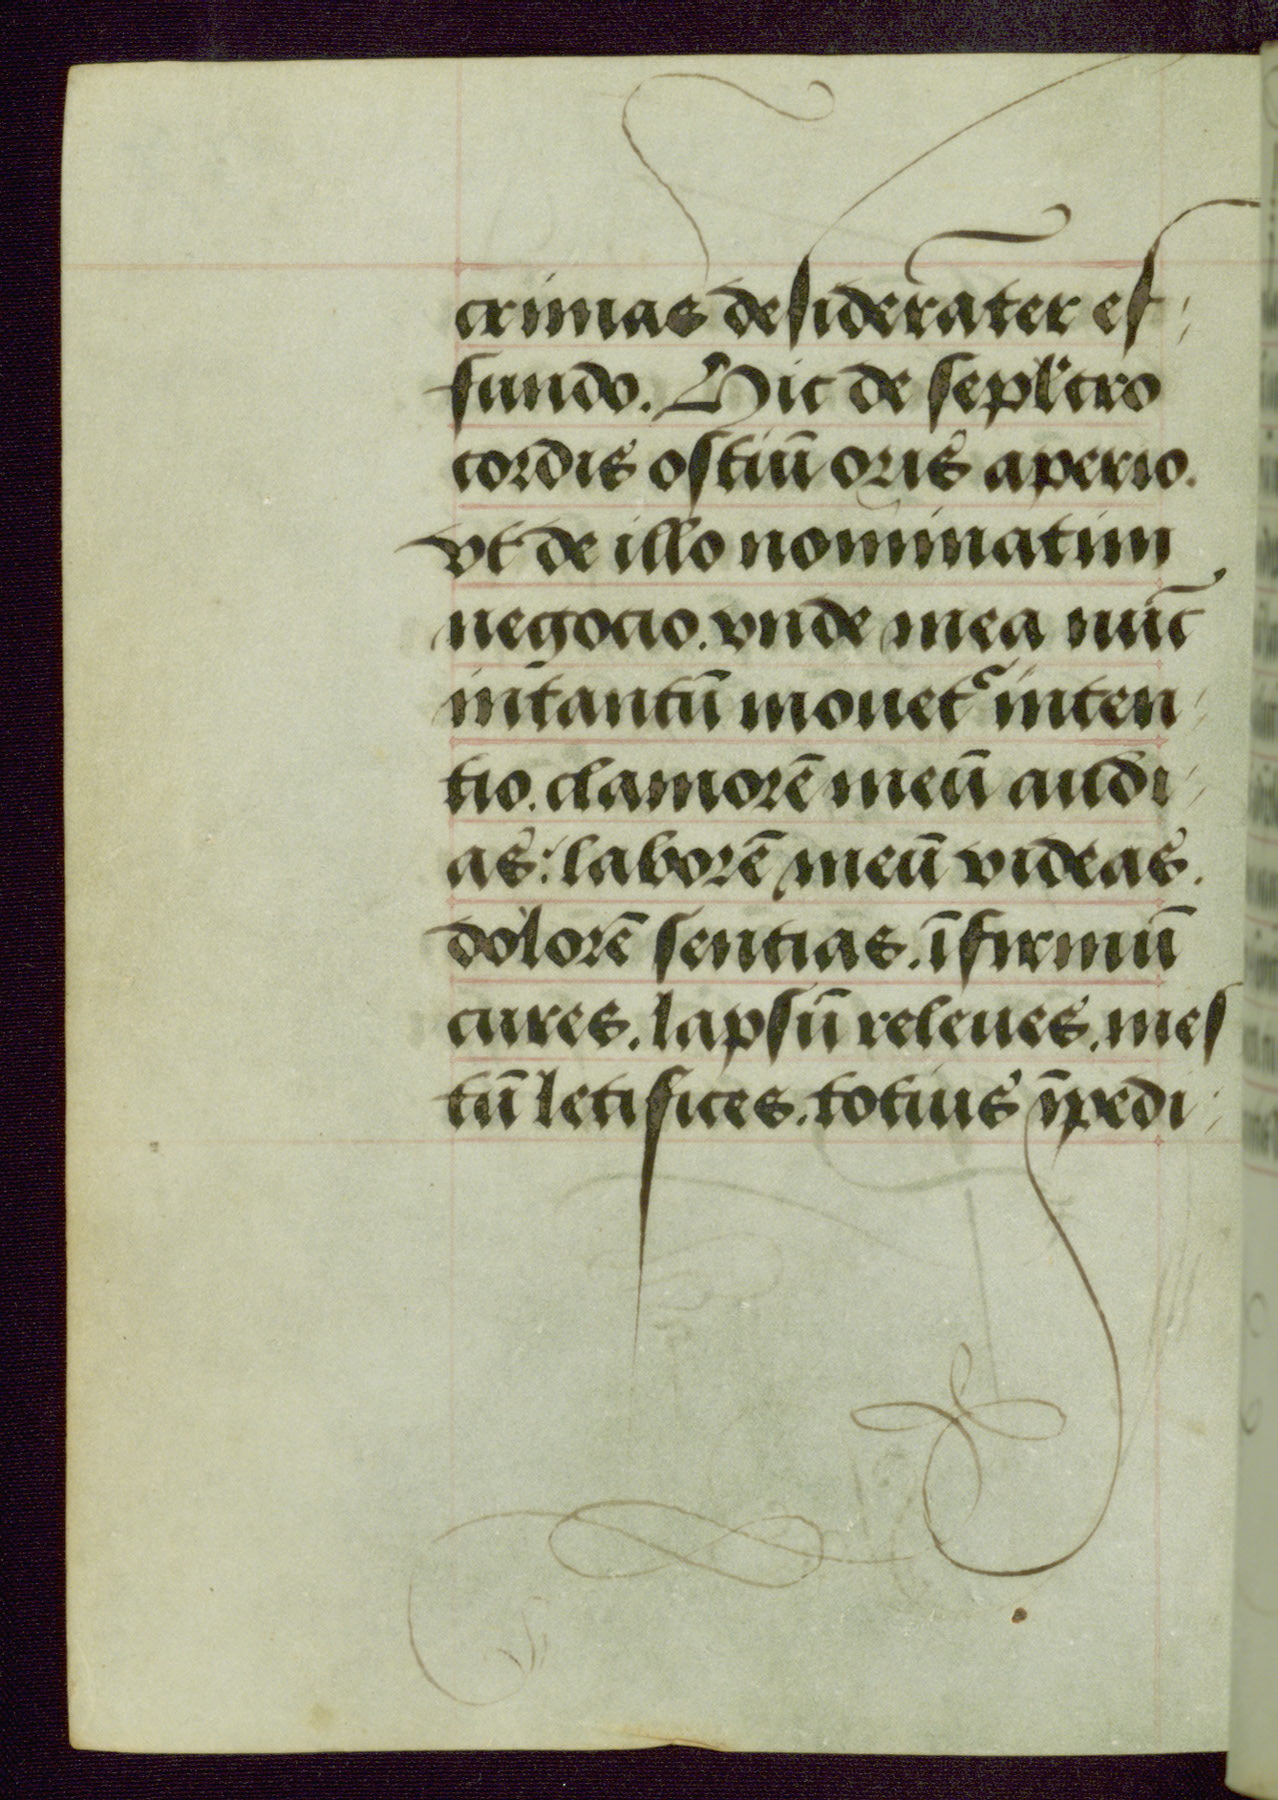 crimas desiderãter ef-
fundo. Hic de sepl'cro
cordis ostiũ oris aperio.
vt de illo nominatim
negocio. vnde mea nũc
intantũ mouet² inten-
tio. clamorẽ meũ audi-
as: laborẽ meũ videas.
dolorẽ sentias. ĩfirmũ
cures. lapsũ releues. mes
tũ letifices. totius ĩpedi-